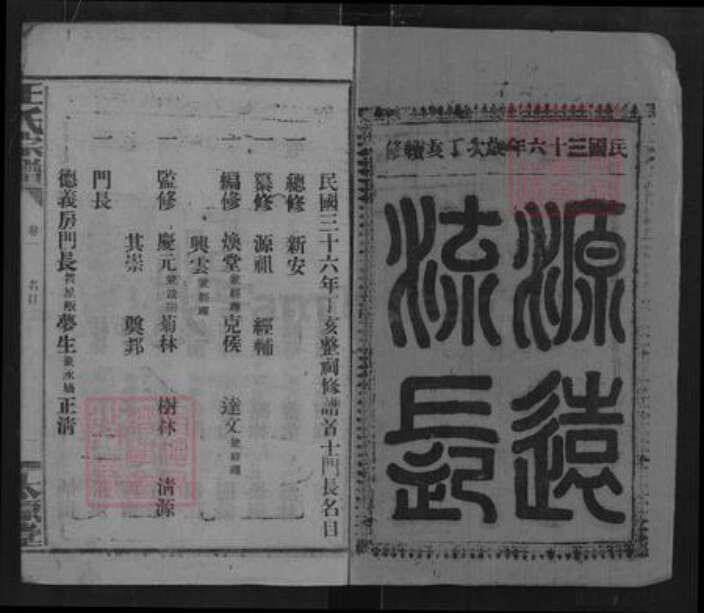 民國三十六年歲次丁亥續修
源遠
流長
民國三十六年丁亥整祠修譜首士門長名目
一 總修 新安
一 纂修 源祖 經輔
一 編修 煥堂兼經理 克俟 達文兼經理
興雲兼經理
一 監修 慶元 菊林 樹林 清源
其崇 奠邦
一 門長
德義房門長 夢生 正清
氏宗譜
卷一
名目